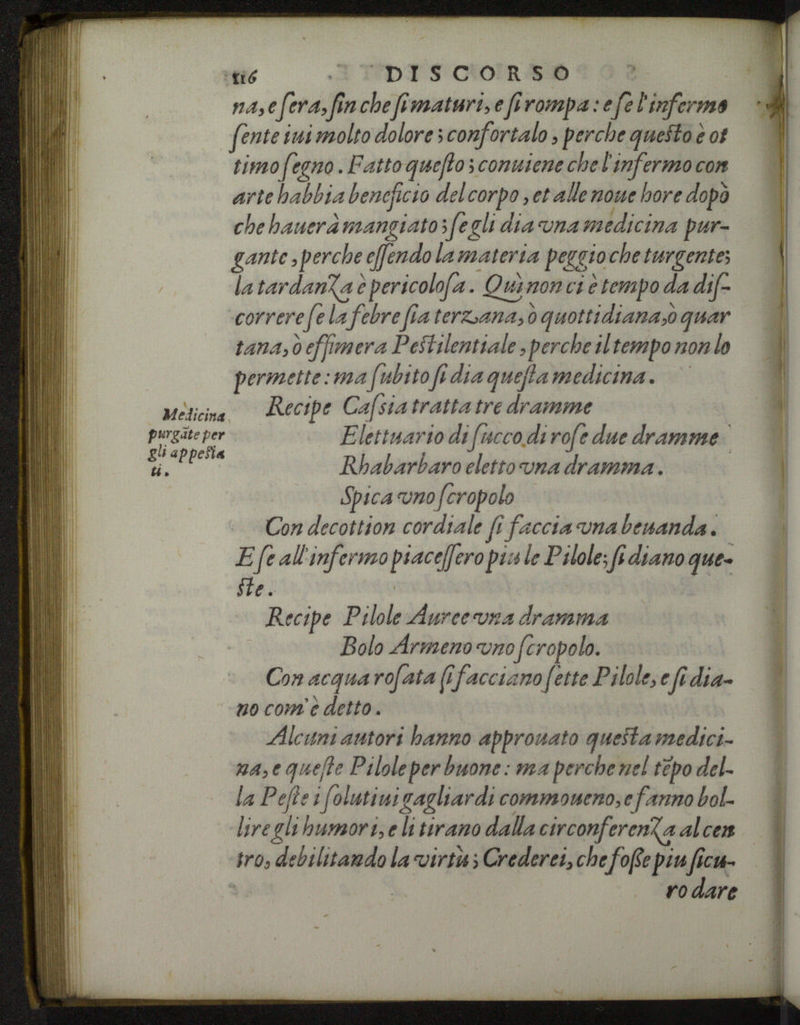 116 DISCORSO
na, e sera, fin che si maturi, e si rompa: e se l'infermo
sente iui molto dolore; confortalo, perche questo è ot
timo segno. Fatto questo; conuiene che l'infermo con
arte habbia beneficio del corpo, et alle noue hore dopò
che hauerà mangiato; se gli dia vna medicina pur-
gante, perche essendo la materia peggio che turgente;
la tardanza è pericolosa. Quì non ci è tempo da dis-
correre se la febre sia terzana, ò quottidiana, ò quar
tana, ò effimera Pestilentiale, perche il tempo non lo
permette: ma subito si dia questa medicina.
Medicina
purgāte per
gli appesta
ti.
Recipe Cassia tratta tre dramme
Elettuario di succo di rose due dramme
Rhabarbaro eletto vna dramma.
Spica vno scropolo
Con decottion cordiale si faccia vna beuanda.
E se all'infermo piacessero piu le Pilole; si diano que-
ste.
Recipe Pilole Auree vna dramma
Bolo Armeno vno scropolo.
Con acqua rosata si facciano sette Pilole, e si dia-
no com'è detto.
Alcuni autori hanno approuato questa medici-
na, e queste Pilole per buone: ma perche nel tēpo del-
la Peste i solutiui gagliardi commoueno, e fanno bol-
lire gli humori, e li tirano dalla circonferenza al cen
tro, debilitando la virtù; Crederei, che fosse piu sicu-
ro dare